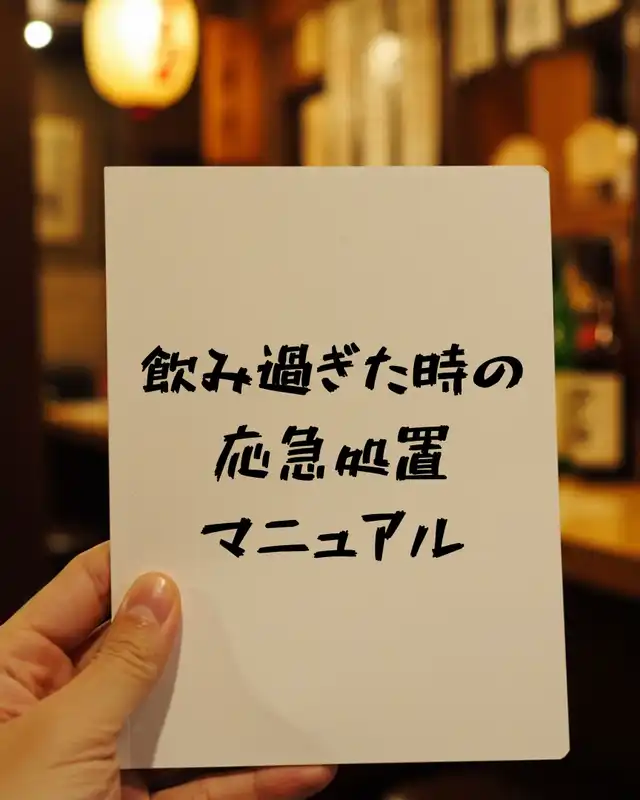 飲み過ぎた時の
応急処置
マニュアル